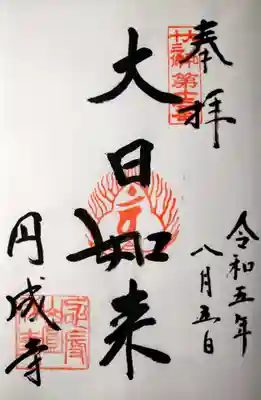 奉拝
令和五年
八月五日
大日如来
円成寺